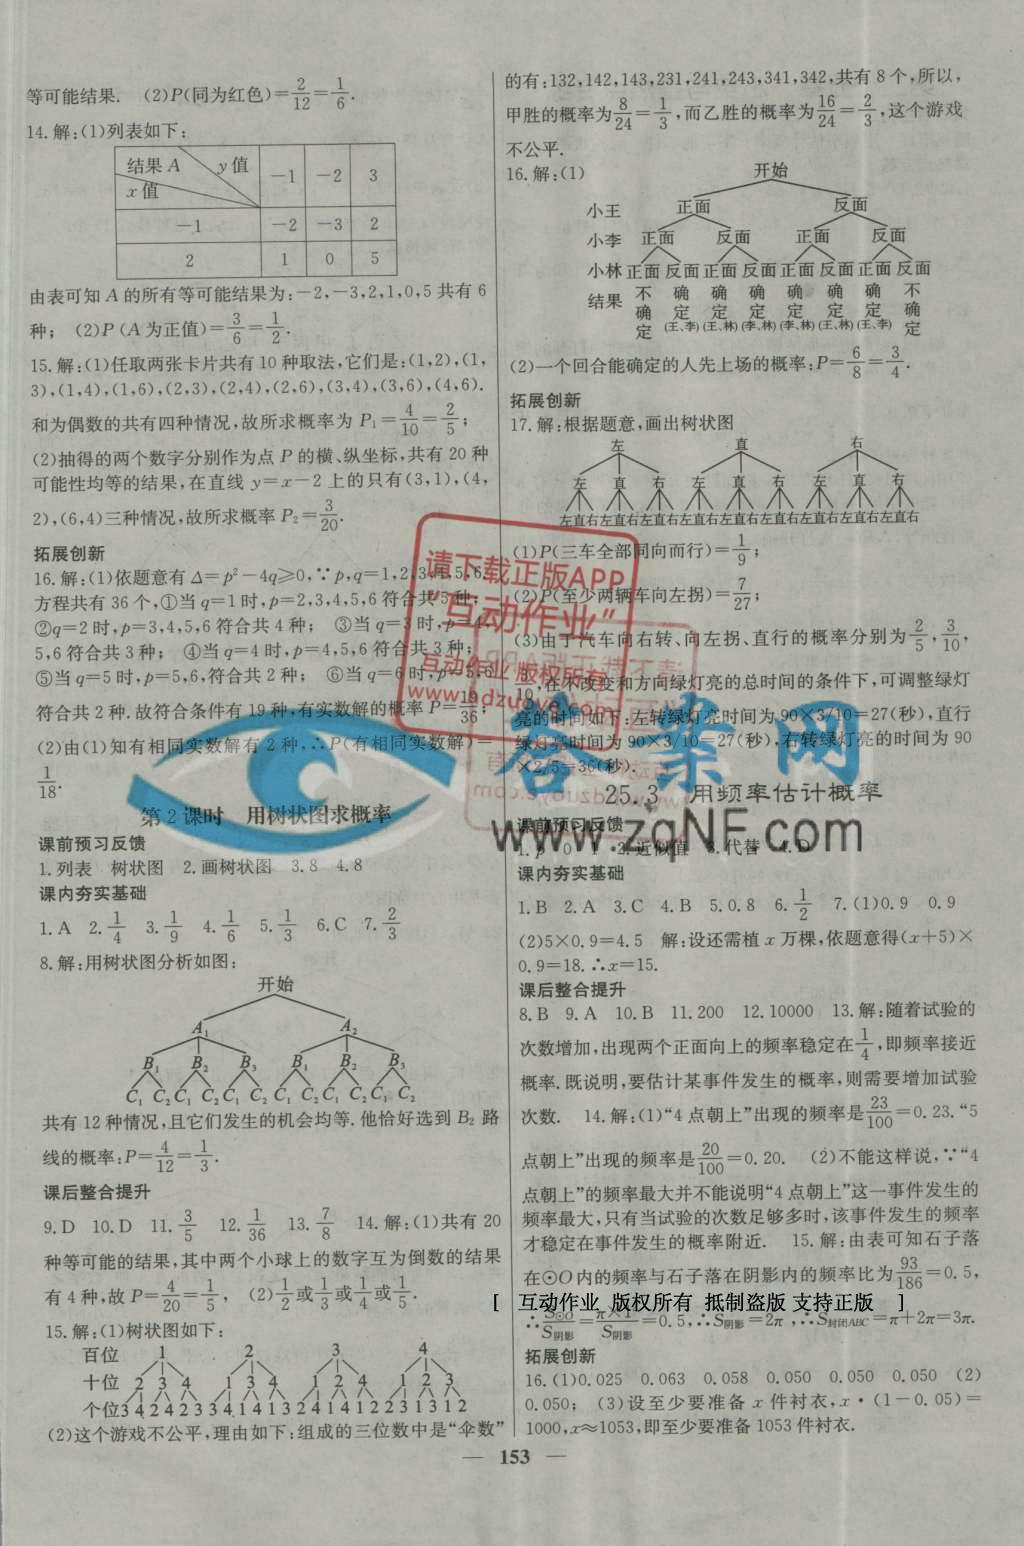 等可能结果. (2)P(同为红色)=2/12=1/6.
14.解:(1)列表如下:
结果A y值 x值 -1 -2 3
-1 -2 -3 2
2 1 0 5
由表可知 A 的所有等可能结果为:-2,-3,2,1,0,5 共有 6
种; (2)P(A 为正值)=3/6=1/2.
15.解:(1)任取两张卡片共有 10 种取法,它们是:(1,2),(1,
3),(1,4),(1,6),(2,3),(2,4),(2,6),(3,4),(3,6),(4,6).
和为偶数的共有四种情况,故所求概率为 P₁=4/10=2/5;
(2)抽得的两个数字分别作为点 P 的横、纵坐标,共有 20 种
可能性均等的结果,在直线 y=x-2 上的只有(3,1),(4,
2),(6,4)三种情况,故所求概率 P₂=3/20.
拓展创新
16.解:(1)依题意有 Δ=p²-4q≥0,∵p,q=1,2,3,4,5,6.
方程共有 36 个,①当 q=1时,p=2,3,4,5,6 符合共5种;
②q=2时,p=3,4,5,6 符合共 4 种; ③当 q=3时,p=4,
5,6 符合共 3 种; ④当 q=4 时,p=4,5,6 符合共 3 种;
⑤当 q=5 时,p=5,6,符合共 2 种; ⑥当 q=6时,p=5,6
符合共 2 种.故符合条件有 19 种,有实数解的概率 P=19/36;
(2)由(1)知有相同实数解有 2 种,∴P(有相同实数解)=
1/18.
第 2 课时 用树状图求概率
课前预习反馈
1.列表 树状图 2.画树状图 3.8 4.8
课内夯实基础
1.A 2.1/4 3.1/9 4.1/6 5.1/3 6.C 7.2/3
8.解:用树状图分析如图:
开始
A₁ A₂
B₁ B₂ B₃ B₁ B₂ B₃
C₁ C₂ C₁ C₂ C₁ C₂ C₁ C₂ C₁ C₂ C₁ C₂
共有 12 种情况,且它们发生的机会均等.他恰好选到 B₂ 路
线的概率:P=4/12=1/3.
课后整合提升
9.D 10.D 11.3/5 12.1/36 13.7/8 14.解:(1)共有 20
种等可能的结果,其中两个小球上的数字互为倒数的结果
有 4 种,故 P=4/20=1/5, (2)1/2或1/3或1/4或1/5.
15.解:(1)树状图如下:
百位 1 2 3 4
十位 2 3 4 1 3 4 1 2 4 1 2 3
个位 3 4 2 4 2 3 3 4 1 4 1 3 2 4 1 4 1 2 2 3 1 3 1 2
(2)这个游戏不公平,理由如下:组成的三位数中是“伞数”
的有:132,142,143,231,241,243,341,342,共有 8 个,所以,
甲胜的概率为8/24=1/3,而乙胜的概率为16/24=2/3,这个游戏
不公平.
16.解:(1)
开始
小王 正面 反面
小李 正面 反面 正面 反面
小林 正面 反面 正面 反面 正面 反面 正面 反面
结果 不确定 确定(王、李) 确定(王、林) 确定(李、林) 确定(李、林) 确定(王、林) 确定(王、李) 不确定
(2)一个回合能确定的人先上场的概率:P=6/8=3/4.
拓展创新
17.解:根据题意,画出树状图
左 直 右
左 直 右 左 直 右 左 直 右
左直右 左直右 左直右 左直右 左直右 左直右 左直右 左直右 左直右
(1)P(三车全部同向而行)=1/9;
(2)P(至少两辆车向左拐)=7/27;
(3)由于汽车向右转、向左拐、直行的概率分别为2/5,3/10,
3/10,在不改变和方向绿灯亮的总时间的条件下,可调整绿灯
亮的时间如下:左转绿灯亮时间为 90×3/10=27(秒),直行
绿灯亮时间为 90×3/10=27(秒),右转绿灯亮的时间为 90
×2/5=36(秒).
25.3 用频率估计概率
课前预习反馈
1.p 0 1 2.近似值 3.代替 4.D
课内夯实基础
1.B 2.A 3.C 4.B 5.0.8 6.1/2 7.(1)0.9 0.9
(2)5×0.9=4.5 解:设还需植 x 万棵,依题意得(x+5)×
0.9=18.∴x=15.
课后整合提升
8.B 9.A 10.B 11.200 12.10000 13.解:随着试验的
次数增加,出现两个正面向上的频率稳定在1/4,即频率接近
概率.既说明,要估计某事件发生的概率,则需要增加试验
次数. 14.解:(1)“4 点朝上”出现的频率是23/100=0.23.“5
点朝上”出现的频率是20/100=0.20. (2)不能这样说,∵“4
点朝上”的频率最大并不能说明“4 点朝上”这一事件发生的
频率最大,只有当试验的次数足够多时,该事件发生的频率
才稳定在事件发生的概率附近. 15.解:由表可知石子落
在⊙O内的频率与石子落在阴影内的频率比为93/186=0.5,
∴S⊙O/S阴影=π×1/S阴影=0.5,∴S阴影=2π,∴S封闭ABC=π+2π=3π.
拓展创新
16.(1)0.025 0.063 0.058 0.050 0.050 0.050 (2)
0.050; (3)设至少要准备 x 件衬衣,x·(1-0.05)=
1000,x≈1053,即至少要准备 1053 件衬衣.
— 153 —
请下载正版APP
“互动作业”
互动作业 版权所有
www.hdzuoye.com
答案网
www.zqNF.com
[ 互动作业 版权所有 抵制盗版 支持正版 ]